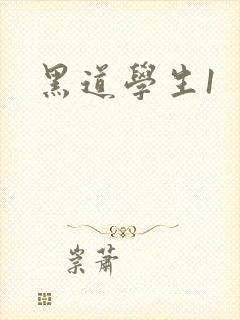 黑道學生1
崇蕭